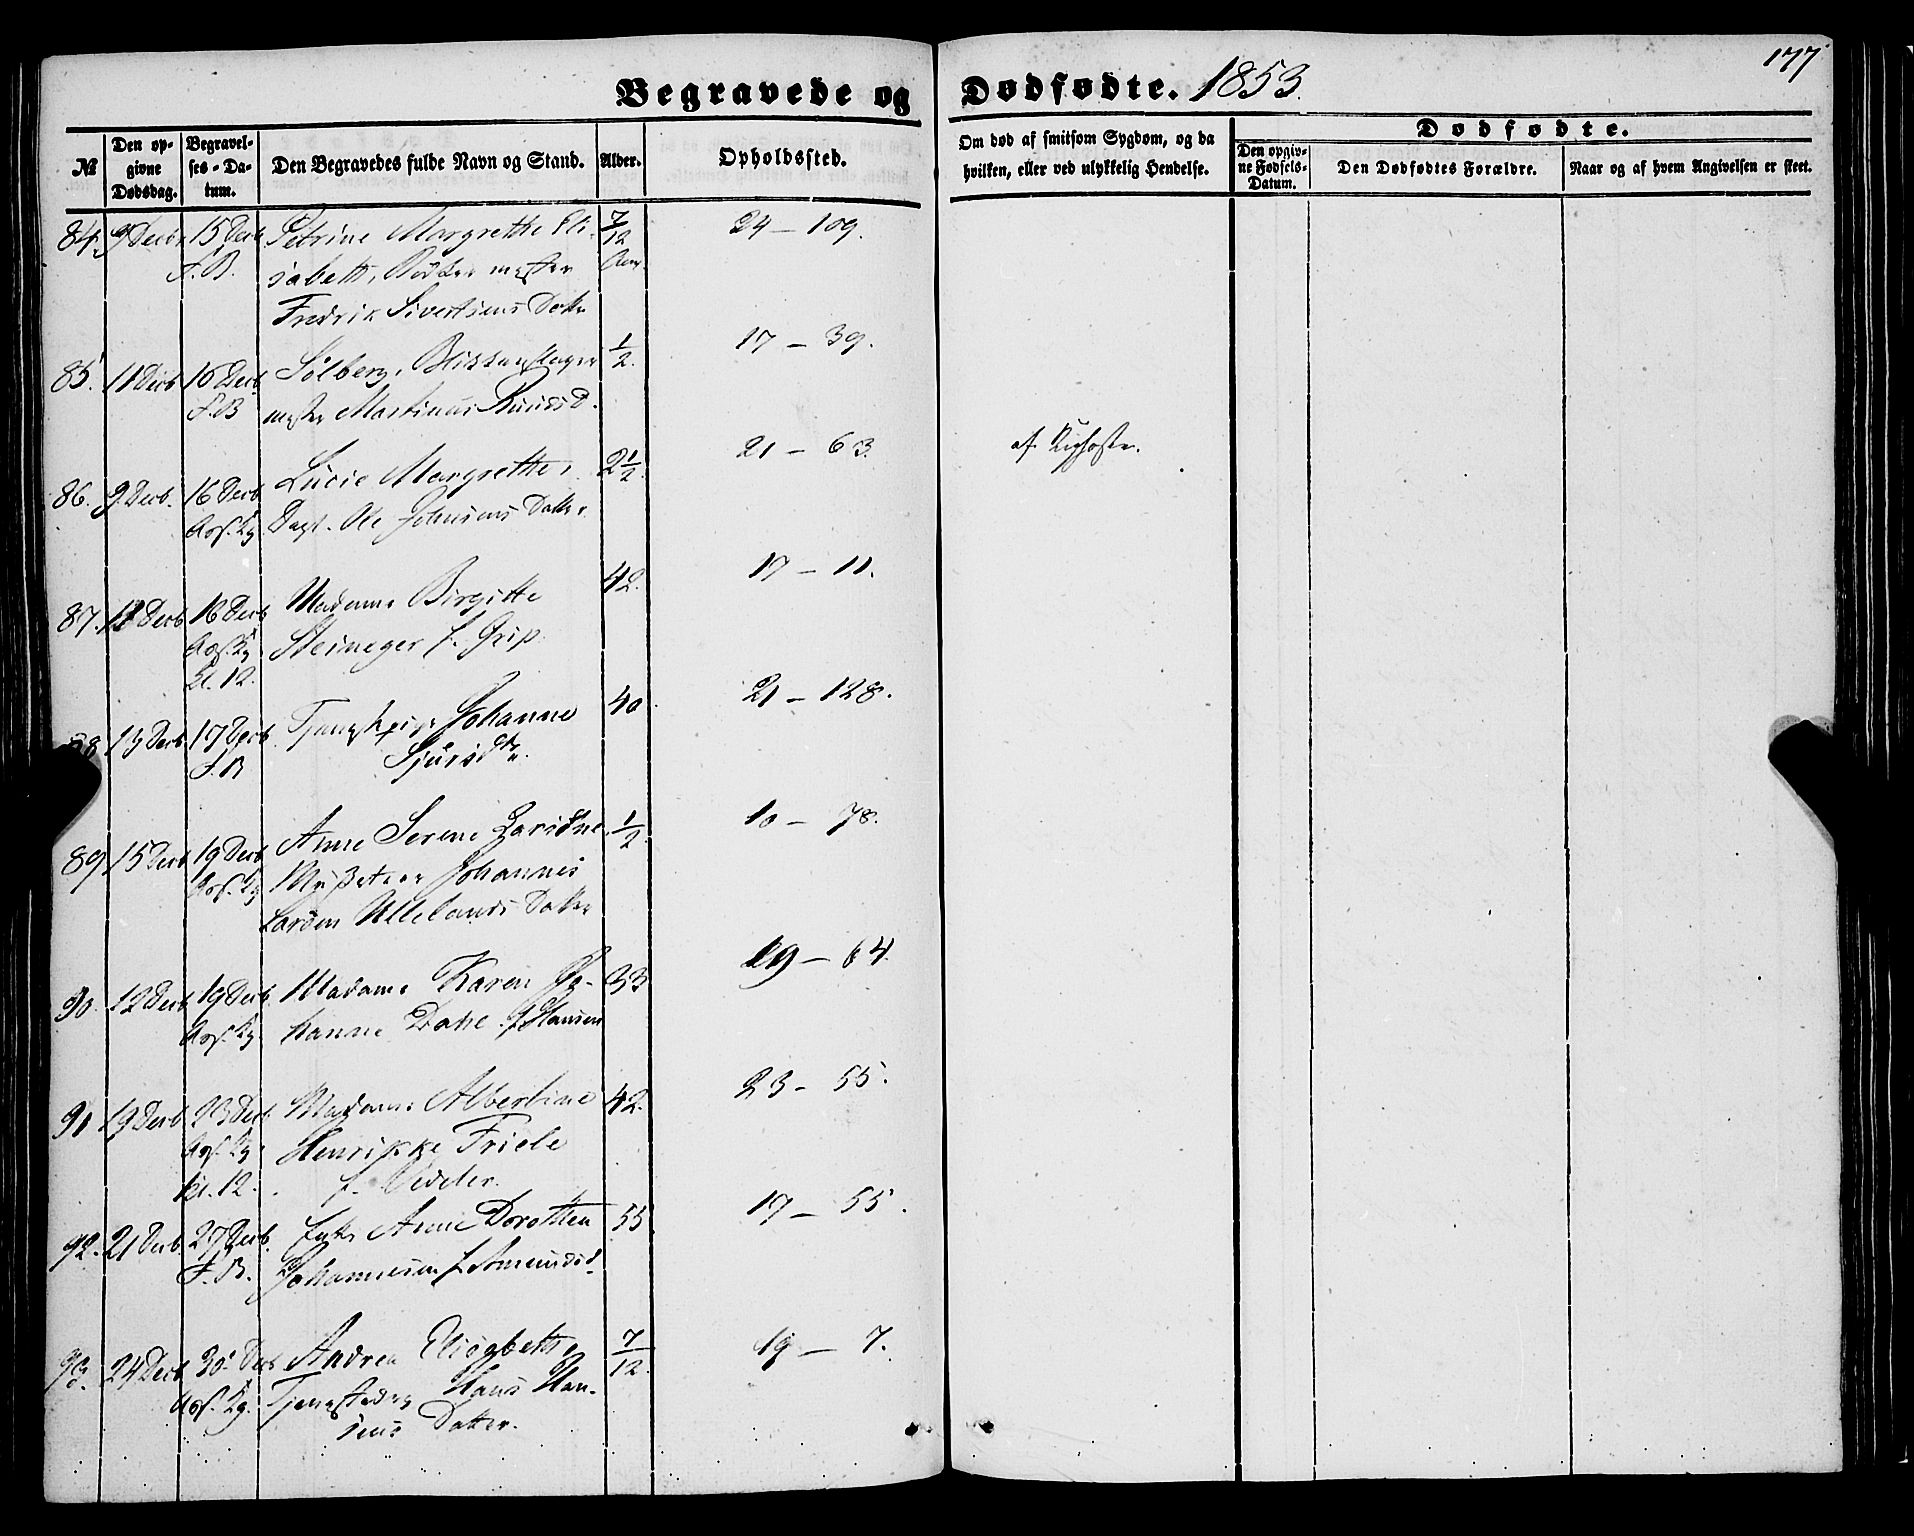 177
Begravede og Dødfødte. 1853.
№ Den opgivne Dødsdag. Begravelses-Datum. Den Begravedes fulde Navn og Stand. Alder. Opholdssted. Om død af smitsom Sygdom, og da hvilken, eller ved ulykkelig Hendelse. Dødfødte.
Den opgivne Fødsels-Datum. Den Dødfødtes Forældre. Naar og af hvem Angivelsen er skeet.
84. 9 Decbr 15 Decb Petrine Margrethe Eli- 7/12 24 – 109.
F. B. sabeth, Bødkermester Aar.
Fredrik Sivertsens Datter
85. 11 Decb 16 Decb Sølberg, Blikkenslager 1/2. 17 – 39.
F. B mester Martinus Knuds D.
86. 9 Decb. 16 Decb Lucie Margrethe, 2 1/2. 21 – 63. af Kighoste.
Ass. Kg Dagl. Ole Johnsens Datter
87. 11 Decb 16 Decb Madame Birgitte 42. 17 – 11.
Ass. Kg Steineger f. Grip
Kl. 12.
88 13 Decb 17 Decb Tjenestepige Johanne 40 21 – 128.
F. B Sjursdtr.
89 15 Decb 19 Decb Anne Serine 1/2. 10 – 78.
Ass. Kg Johannes
Larsen Ullelands Datter
90. 12 Decb 19 Decb Madame Karen Jo- 33 19 – 64.
Ass. Kg. hanne Dahl f. Hansen
91 19 Decb 23 Decb. Madame Albertine 42. 23 – 55.
Ass. Kg Henrikke Friele
kl. 12. f. Vedeler.
92. 21 Decb. 27 Decb. Enke Anne Dorothea 55 17 – 55.
F. B. Johannesen f. Amundsd.
93. 24 Decb 30 Decb Andrea Elisabeth, 7/12. 19 – 7.
Ass. Kg. Hans Han-
sens Datter.